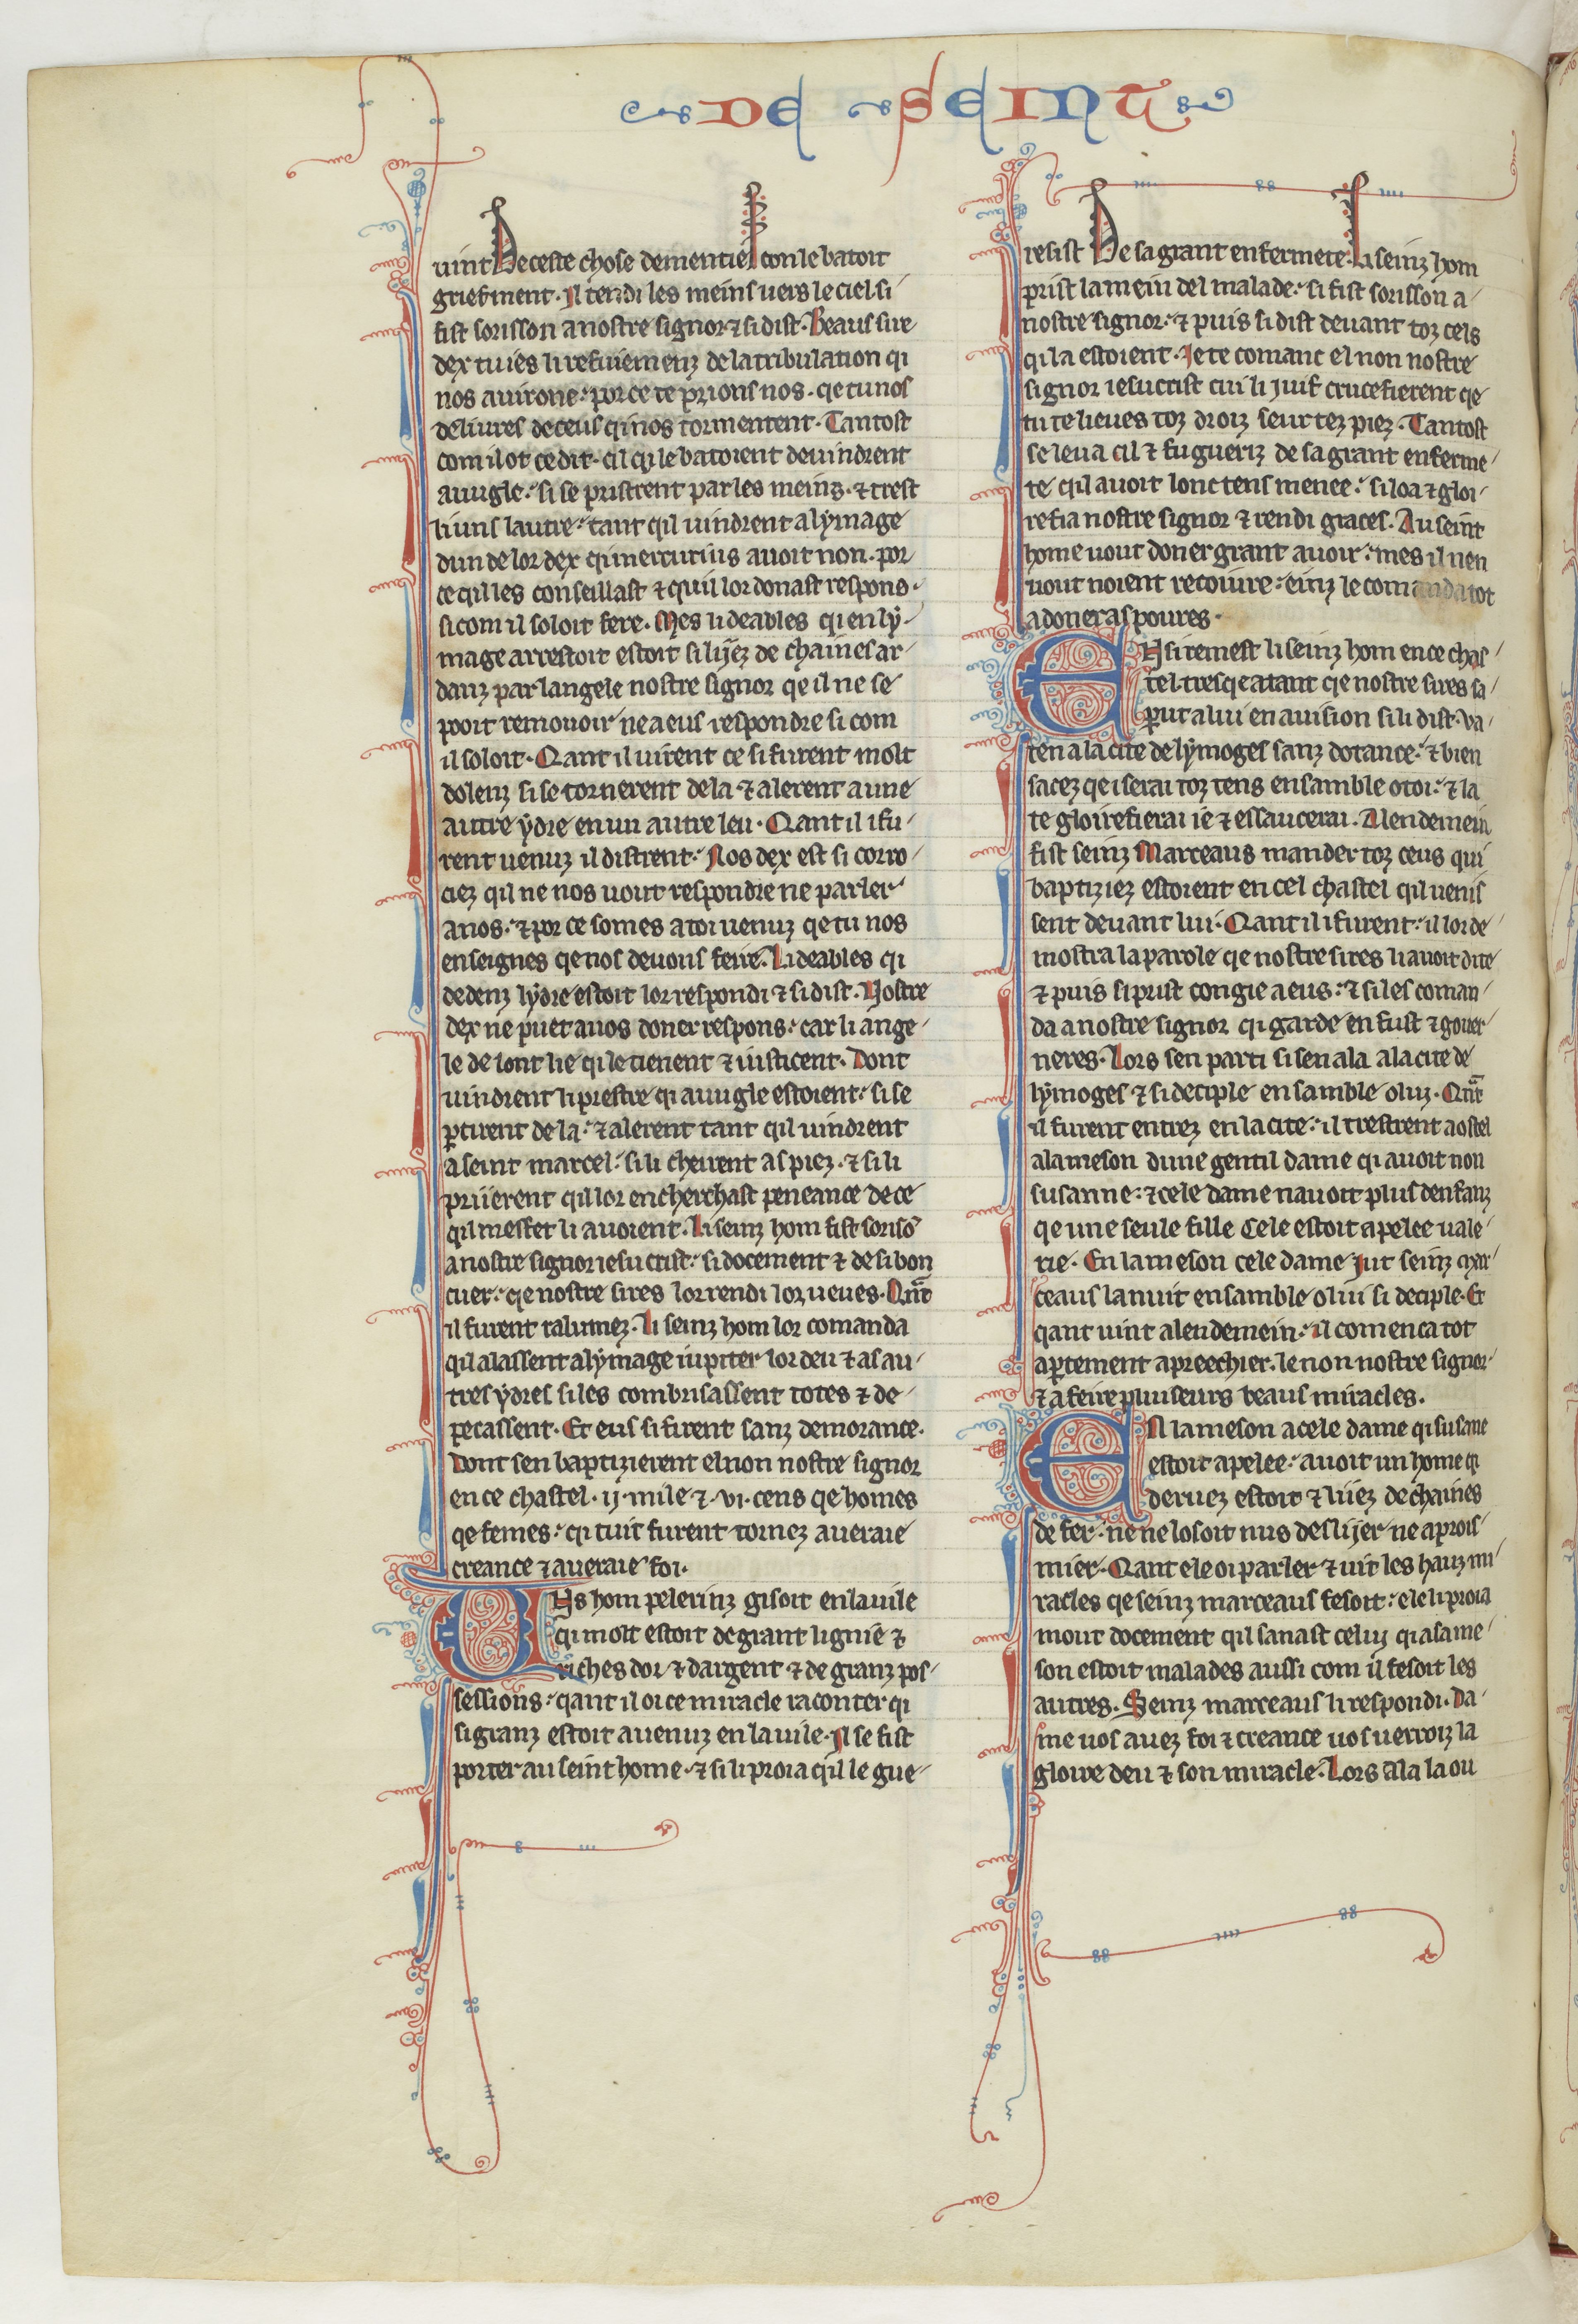 DE SEINT
uint De ceste chose dementiel con le batoit
griefment. Il tendi les meins uers le ciel si
fist sorisson a nostre signor ⁊ si dist. Beaus sire
dex tu ies li refuiemenz de la tribulation qi
nos auirone. por ce te prions nos. qe tu nos
deliures de ceus qi nos tormentent. Tantost
com il ot ce dit. cil qi le batoient deuindrent
auugle. si se pristrent par les meins. ⁊ trest
li uns lautre. tant qil uindrent a lymage
dun de lor dex qi mercurius auoit non. por
ce qil les conseillast ⁊ quil lor donast respons.
si com il soloit fere. Mes li deables qi en ly
mage arrestoit estoit si lijez de chaines ar
danz par langele nostre signor qe il ne se
pooit remouoir ne a eus respondre si com
il soloit. Qant il uirent ce si furent molt
dolenz si se tornerent de la ⁊ alerent a une
autre ydre en un autre leu. Qant il i fu
rent uenuz il distrent. Nos dex est si corro
ciez qil ne nos uout respondre ne parler
a nos. ⁊ por ce somes a toi uenuz qe tu nos
enseignes qe nos deuons feire. Li deables qi
dedenz lydre estoit lor respondi ⁊ si dist. Nostre
dex ne puet a uos doner respons. car li ange
le de lont lie qi le tienent ⁊ iusticent. Dont
uindrent li prestre qi auugle estoient. si se
ptirent de la. ⁊ alerent tant qil uindrent
a seint marcel. si li cheirent as piez. ⁊ si li
priierent qil lor encherchast peneance de ce
qil mesfet li auoient. Li seinz hom fist soriso
a nostre signor iesucrist. si docement ⁊ de si bon
cuer. qe nostre sires lor rendi lor ueues. Qnt
il furent ralumez. Li seinz hom lor comanda
qil alassent a lymage iupiter lor deu ⁊ as au
tres ydres si les combrisassent totes ⁊ de
pecassent. Et eus si firent sanz demorance.
Dont sen baptizierent el non nostre signor
en ce chastel. ij. mile ⁊. vi. cens qe homes
qe femes. qi tuit furent tornez a ueraie
creance ⁊ a ueraie foi.
Uns hom pelerinz gisoit en la uile
qi molt estoit de grant lignie ⁊
riches dor ⁊ dargent ⁊ de granz pos
sessions. qant il oi ce miracle raconter qi
si granz estoit auenuz en la uile. Il se fist
porter au seint home. ⁊ si li proia qil le gue
resist De sa grant enfermete. Li seinz hom
prist la mein del malade. si fist sorisson a
nostre signor. ⁊ puis si dist deuant toz cels
qi la estoient. Ie te comant el non nostre
signor iesucrist cui li juif crucefierent qe
tu te lieues toz droiz seur tez piez. Tantost
se leua cil ⁊ fu gueriz de sa grant enferme
te qil auoit lonc tens menee. si loa ⁊ glori
refia nostre signor ⁊ rendi graces. Au seint
home uout doner grant auoir. mes il nen
uout noient recoiure. einz le comanda tot
a doner as poures.
Ensi remest li seinz hom en ce chas
tel. tresqe atant qe nostre sires sa
parut a lui en auision si li dist. Va
ten a la cite de lymoges sanz dotance. ⁊ bien
sacez qe i serai toz tens ensamble o toi. ⁊ la
te gloirefierai ie ⁊ essaucerai. Alendemein
fist seinz Marceaus mander toz ceus qui
baptiziez estoient en cel chastel qil uenis
sent deuant lui. Qant il i furent. il lor de
mostra la parole qe nostre sires li auoit dite
⁊ puis si prist congie a eus. ⁊ si les coman
da a nostre signor qi garde en fust ⁊ gouer
neres. Lors sen parti si sen ala a la cite de
lymoges ⁊ si deciple ensamble o luz. Qnt
il furent entrez en la cite. il trestrent a ostel
a la meson dune gentil dame qi auoit non
susanne. ⁊ cele dame nauoit plus denfanz
qe une seule fille cele estoit apelee uale
rie. En la meson cele dame jut seinz mar
ceaus la nuit ensamble o lui si deciple. Et
qant uint a lendemein. il comenca tot
aptement a preechier. le non nostre signor
⁊ a feire pluiseurs beaus miracles.
En la meson a cele dame qi susane
estoit apelee. auoit un home qi
deruez estoit ⁊ liiez de chaines
de fer. ne ne losoit nus deslijer ne aprois
mier. Qant ele oi parler ⁊ uit les hauz mi
racles qe seinz marceaus fesoit. ele li proia
mout docement qil sanast celui qi a sa me
son estoit malades aussi com il fesoit les
autres. Seinz marceaus li respondi. Da
me uos auez foi ⁊ creance uos uerroiz la
gloire deu ⁊ son miracle. Lors ala la ou